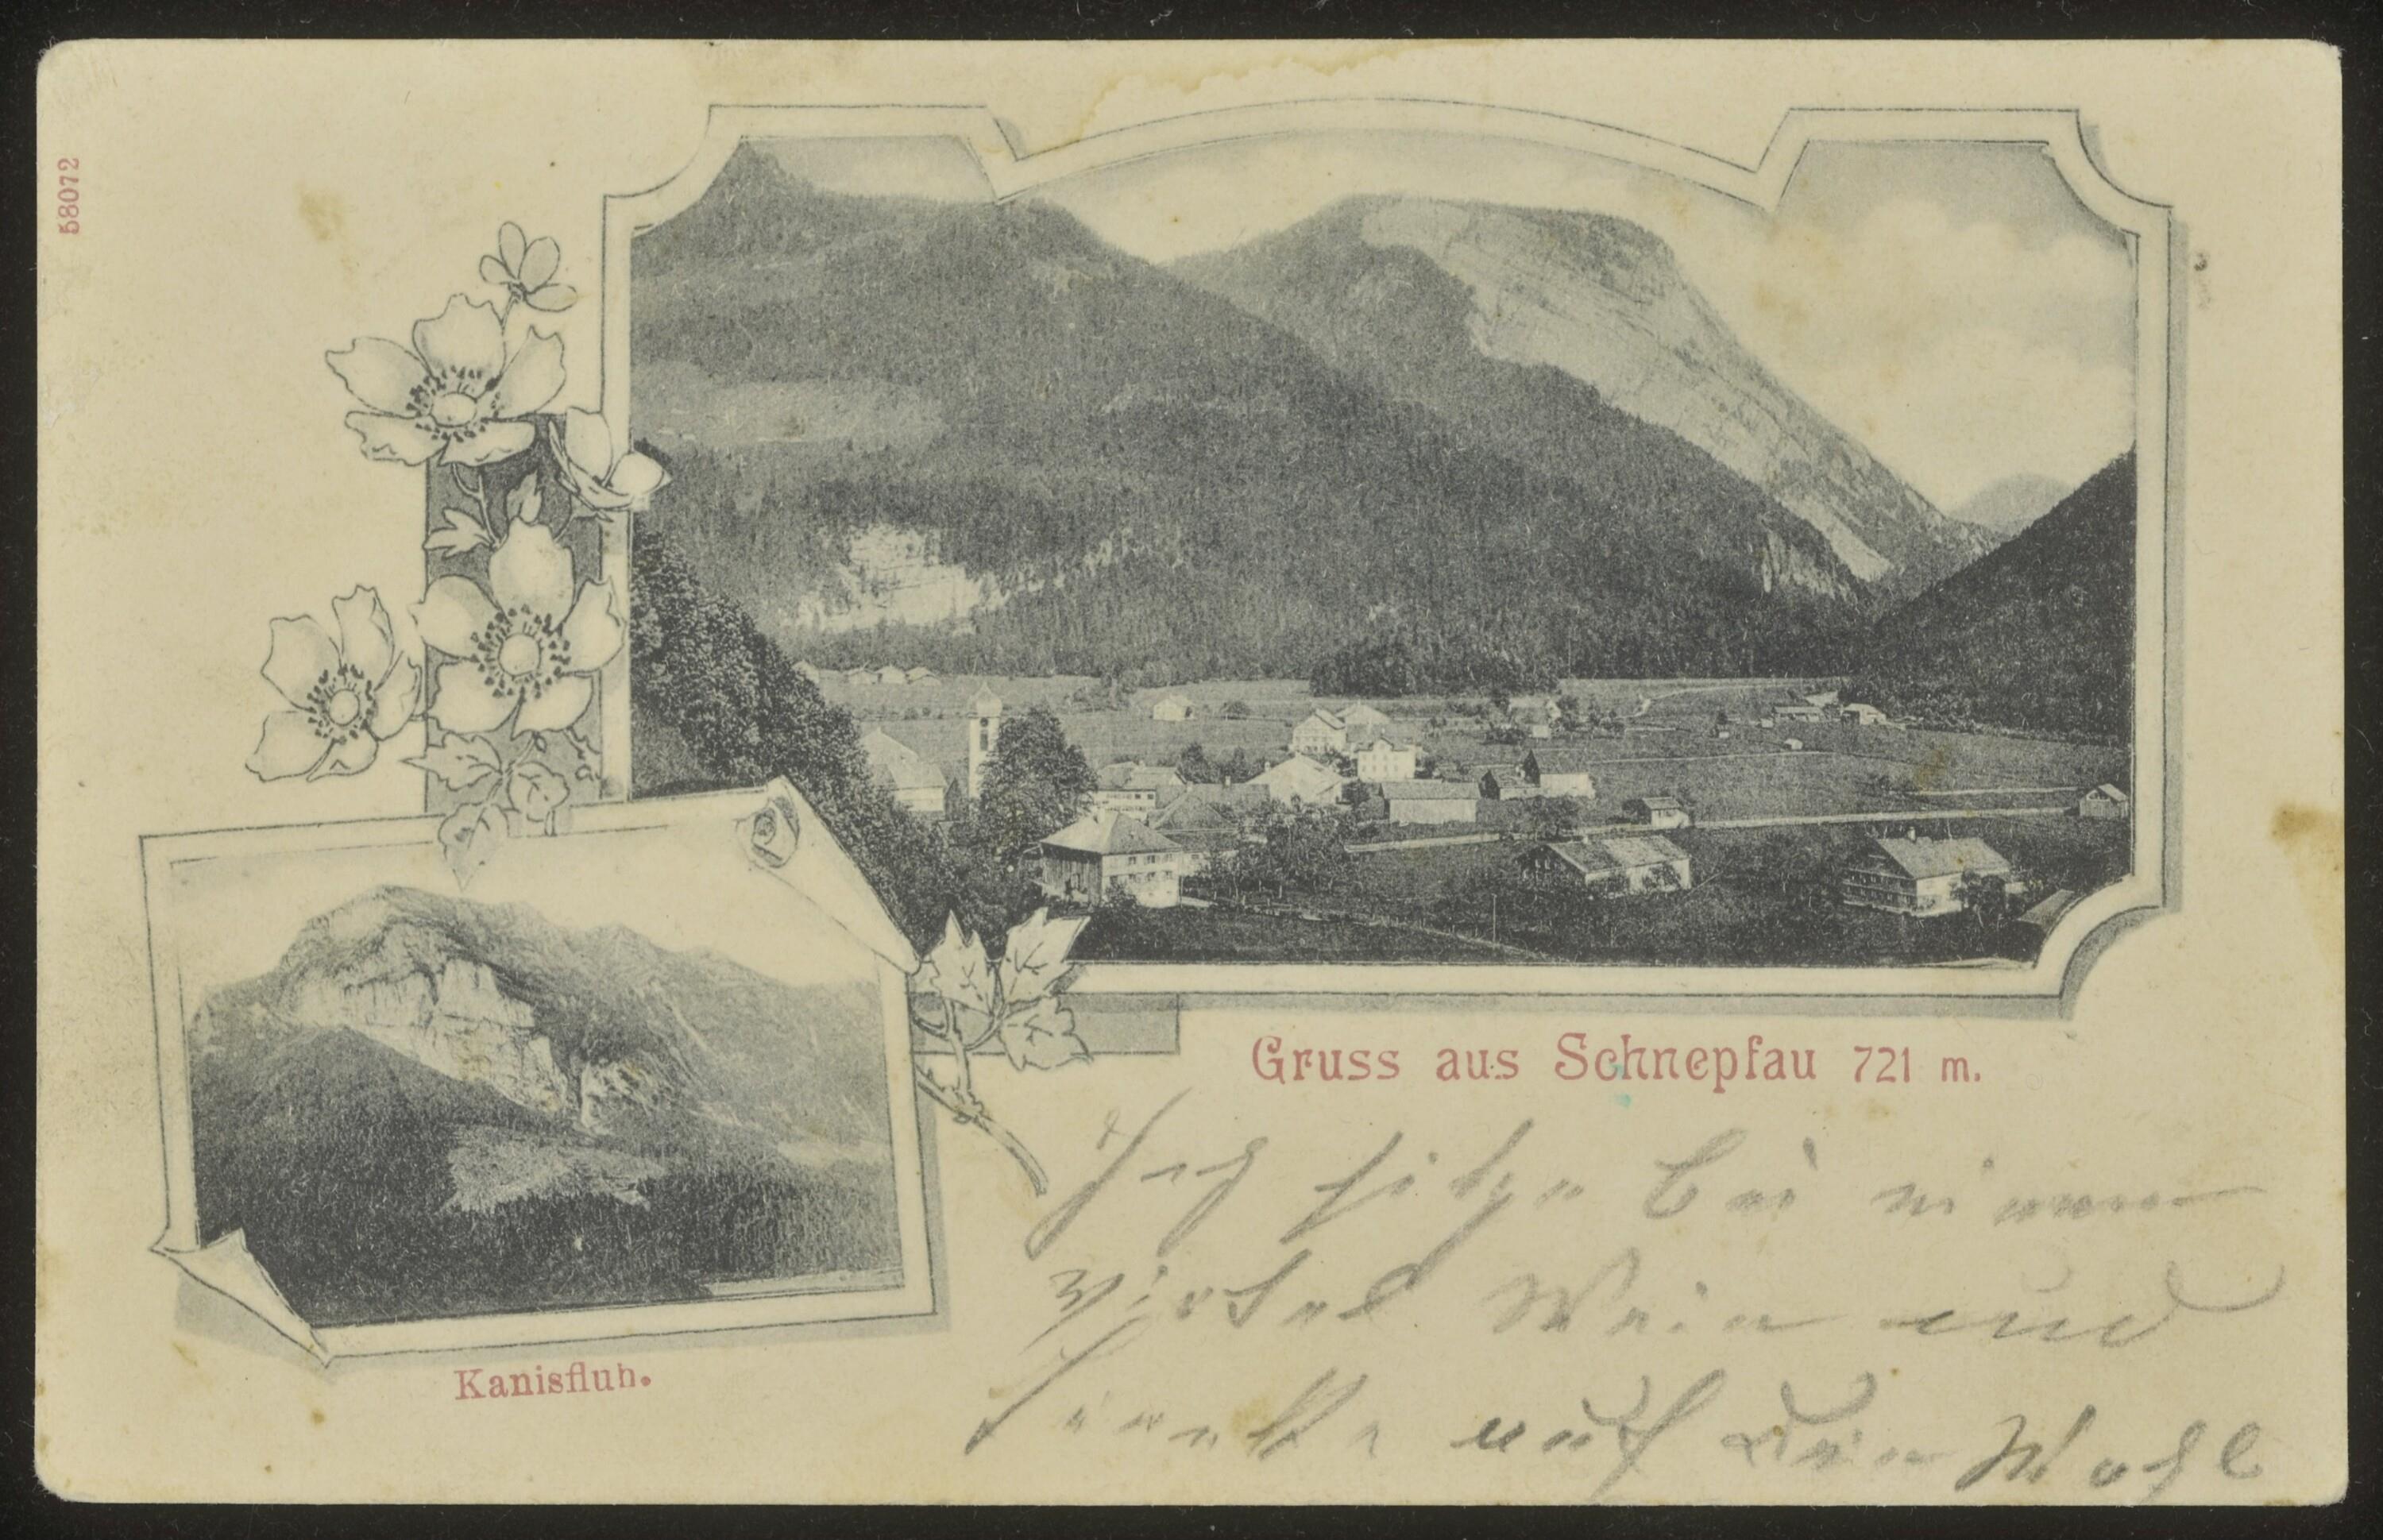 58072
Gruss aus Schnepfau 721 m.
Kanisfluh.
Ich sitze bei einem
Viertel Wein und
trinke auf dein Wohl